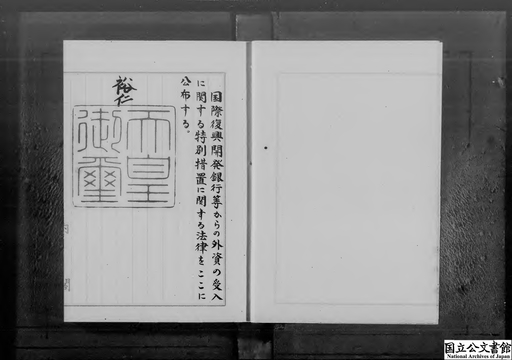 国際復興開発銀行等からの外資の受入
に関する特別措置に関する法律をここに
公布する。
裕仁
天皇
御璽
国立公文書館
National Archives of Japan